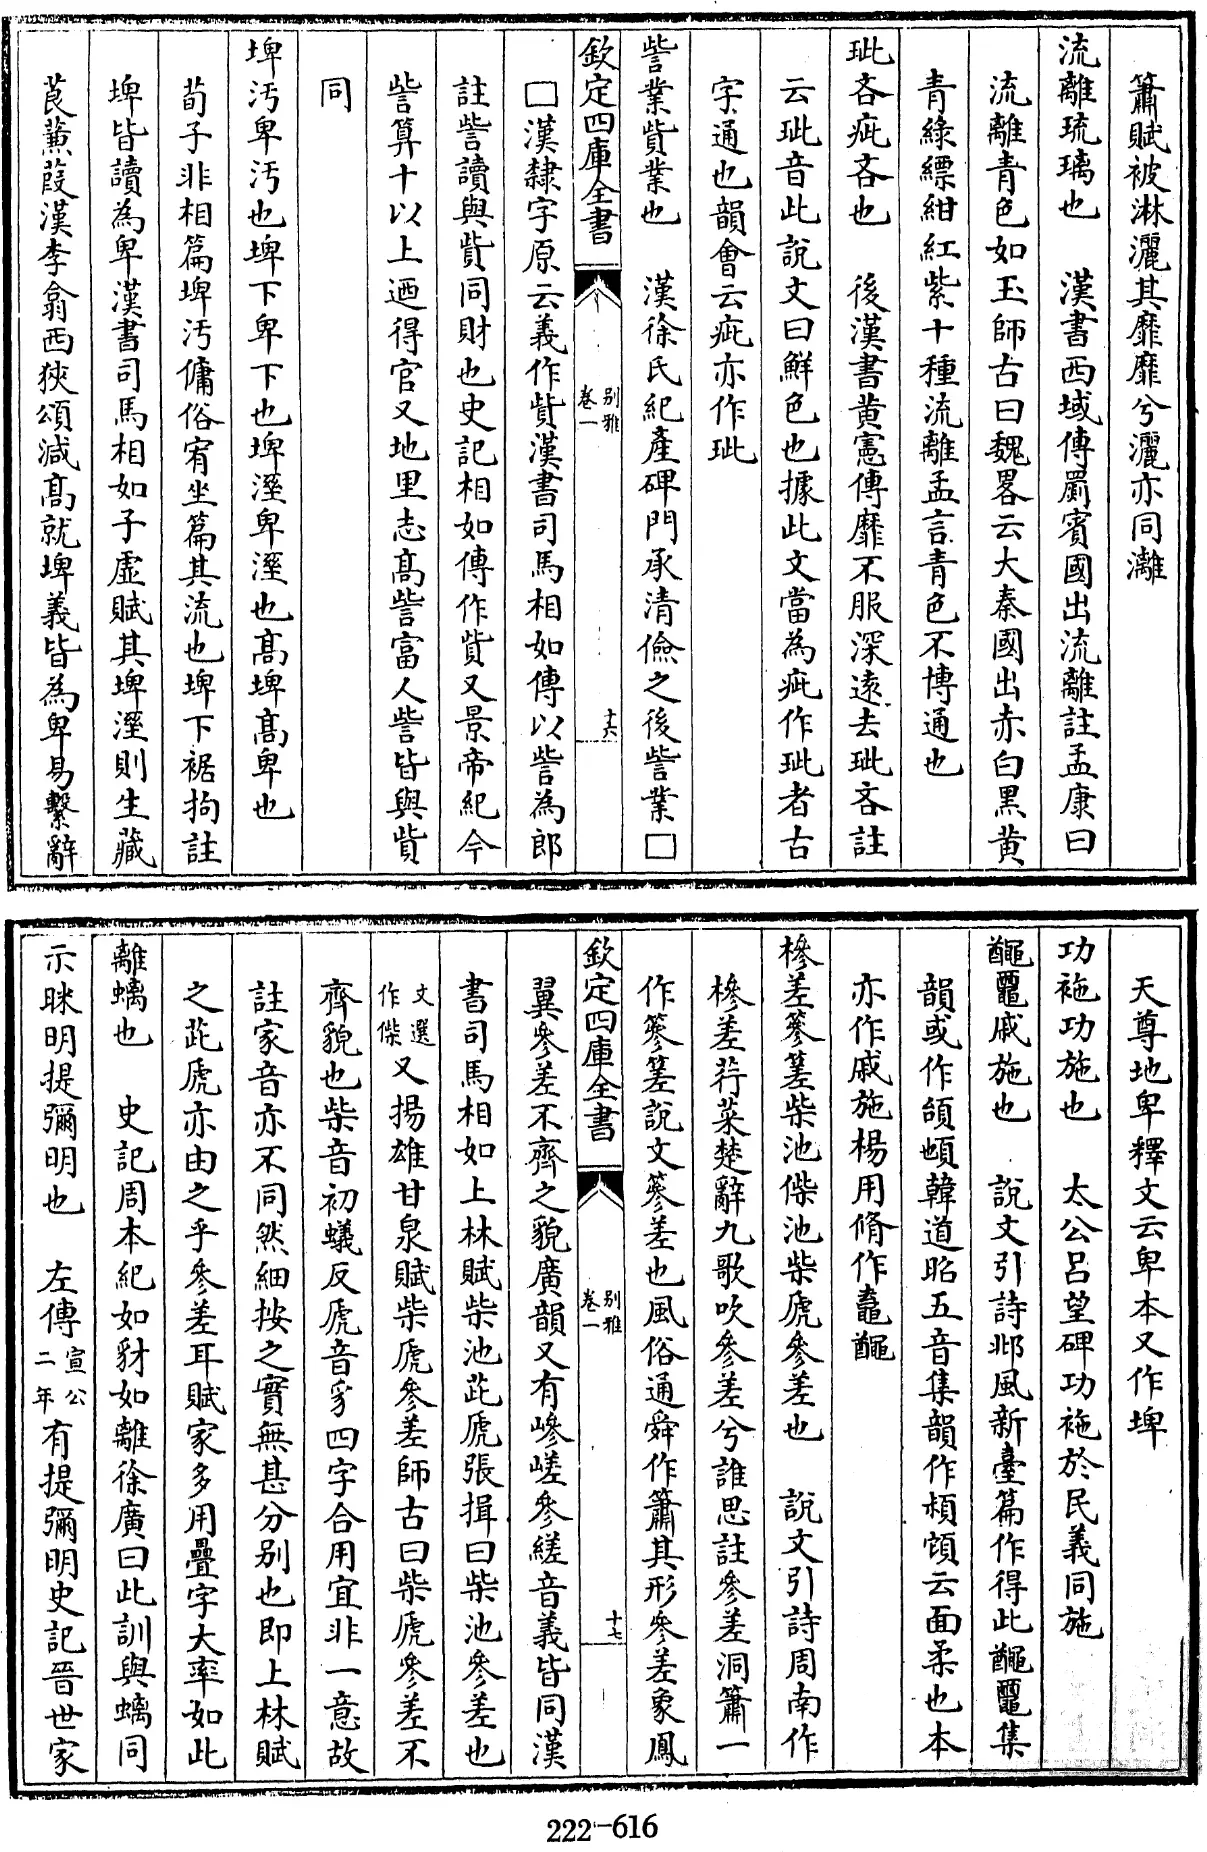 簫賦被淋灑其靡靡兮灑亦同灕
流離琉璃也　漢書西域傳罽賓國出流離註孟康曰
流離青色如玉師古曰魏畧云大秦國出赤白黒黄
青綠縹紺紅紫十種流離孟言青色不博通也
玼吝疵吝也　後漢書黄憲傳靡不服深逺去玼吝註
云玼音此說文曰鮮色也據此文當為疵作玼者古
字通也韻會云疵亦作玼
訾業貲業也　漢徐氏紀產碑門承清儉之後訾業□
欽定四庫全書
别雅
卷一
十六
□漢隸字原云義作貲漢書司馬相如傳以訾為郎
註訾讀與貲同財也史記相如傳作貲又景帝紀今
訾算十以上迺得官又地里志高訾富人訾皆與貲
同
埤汚卑汚也埤下卑下也埤溼卑溼也髙埤髙卑也
荀子非相篇埤汚傭俗宥坐篇其流也埤下裾拘註
埤皆讀為卑漢書司馬相如子虛賦其埤溼則生藏
莨蒹葭漢李翕西狹頌減髙就埤義皆為卑易繫辭
天尊地卑釋文云卑本又作埤
功袘功施也　太公呂望碑功袘於民義同施
𪓰𪓿戚施也　說文引詩邶風新臺篇作得此𪓰𪓿集
韻或作䫌䫜韓道昭五音集韻作頬䪼云面柔也本
亦作戚施楊用脩作鼀𪓰
槮差篸䇎柴池傑池柴虒參差也　說文引詩周南作
槮差荇菜楚辭九歌吹參差兮誰思註參差洞簫一
作篸䇎說文篸差也風俗通舜作簫其形參差象鳳
欽定四庫全書
别雅
卷一
十七
翼參差不齊之貌廣韻又有嵾嵯參縒音義皆同漢
書司馬相如上林賦柴池茈虒張揖曰柴池參差也
文選
作傑又揚雄甘泉賦柴虒參差師古曰柴虒參差不
齊貌也柴音初蟻反虒音豸四字合用宜非一意故
註家音亦不同然細按之實無甚分别也即上林賦
之茈虒亦由之乎參差耳賦家多用疊字大率如此
離螭也　史記周本紀如豺如離徐廣曰此訓與螭同
示眯明提彌明也　左傳宣公
二年有提彌明史記晉世家
222-616